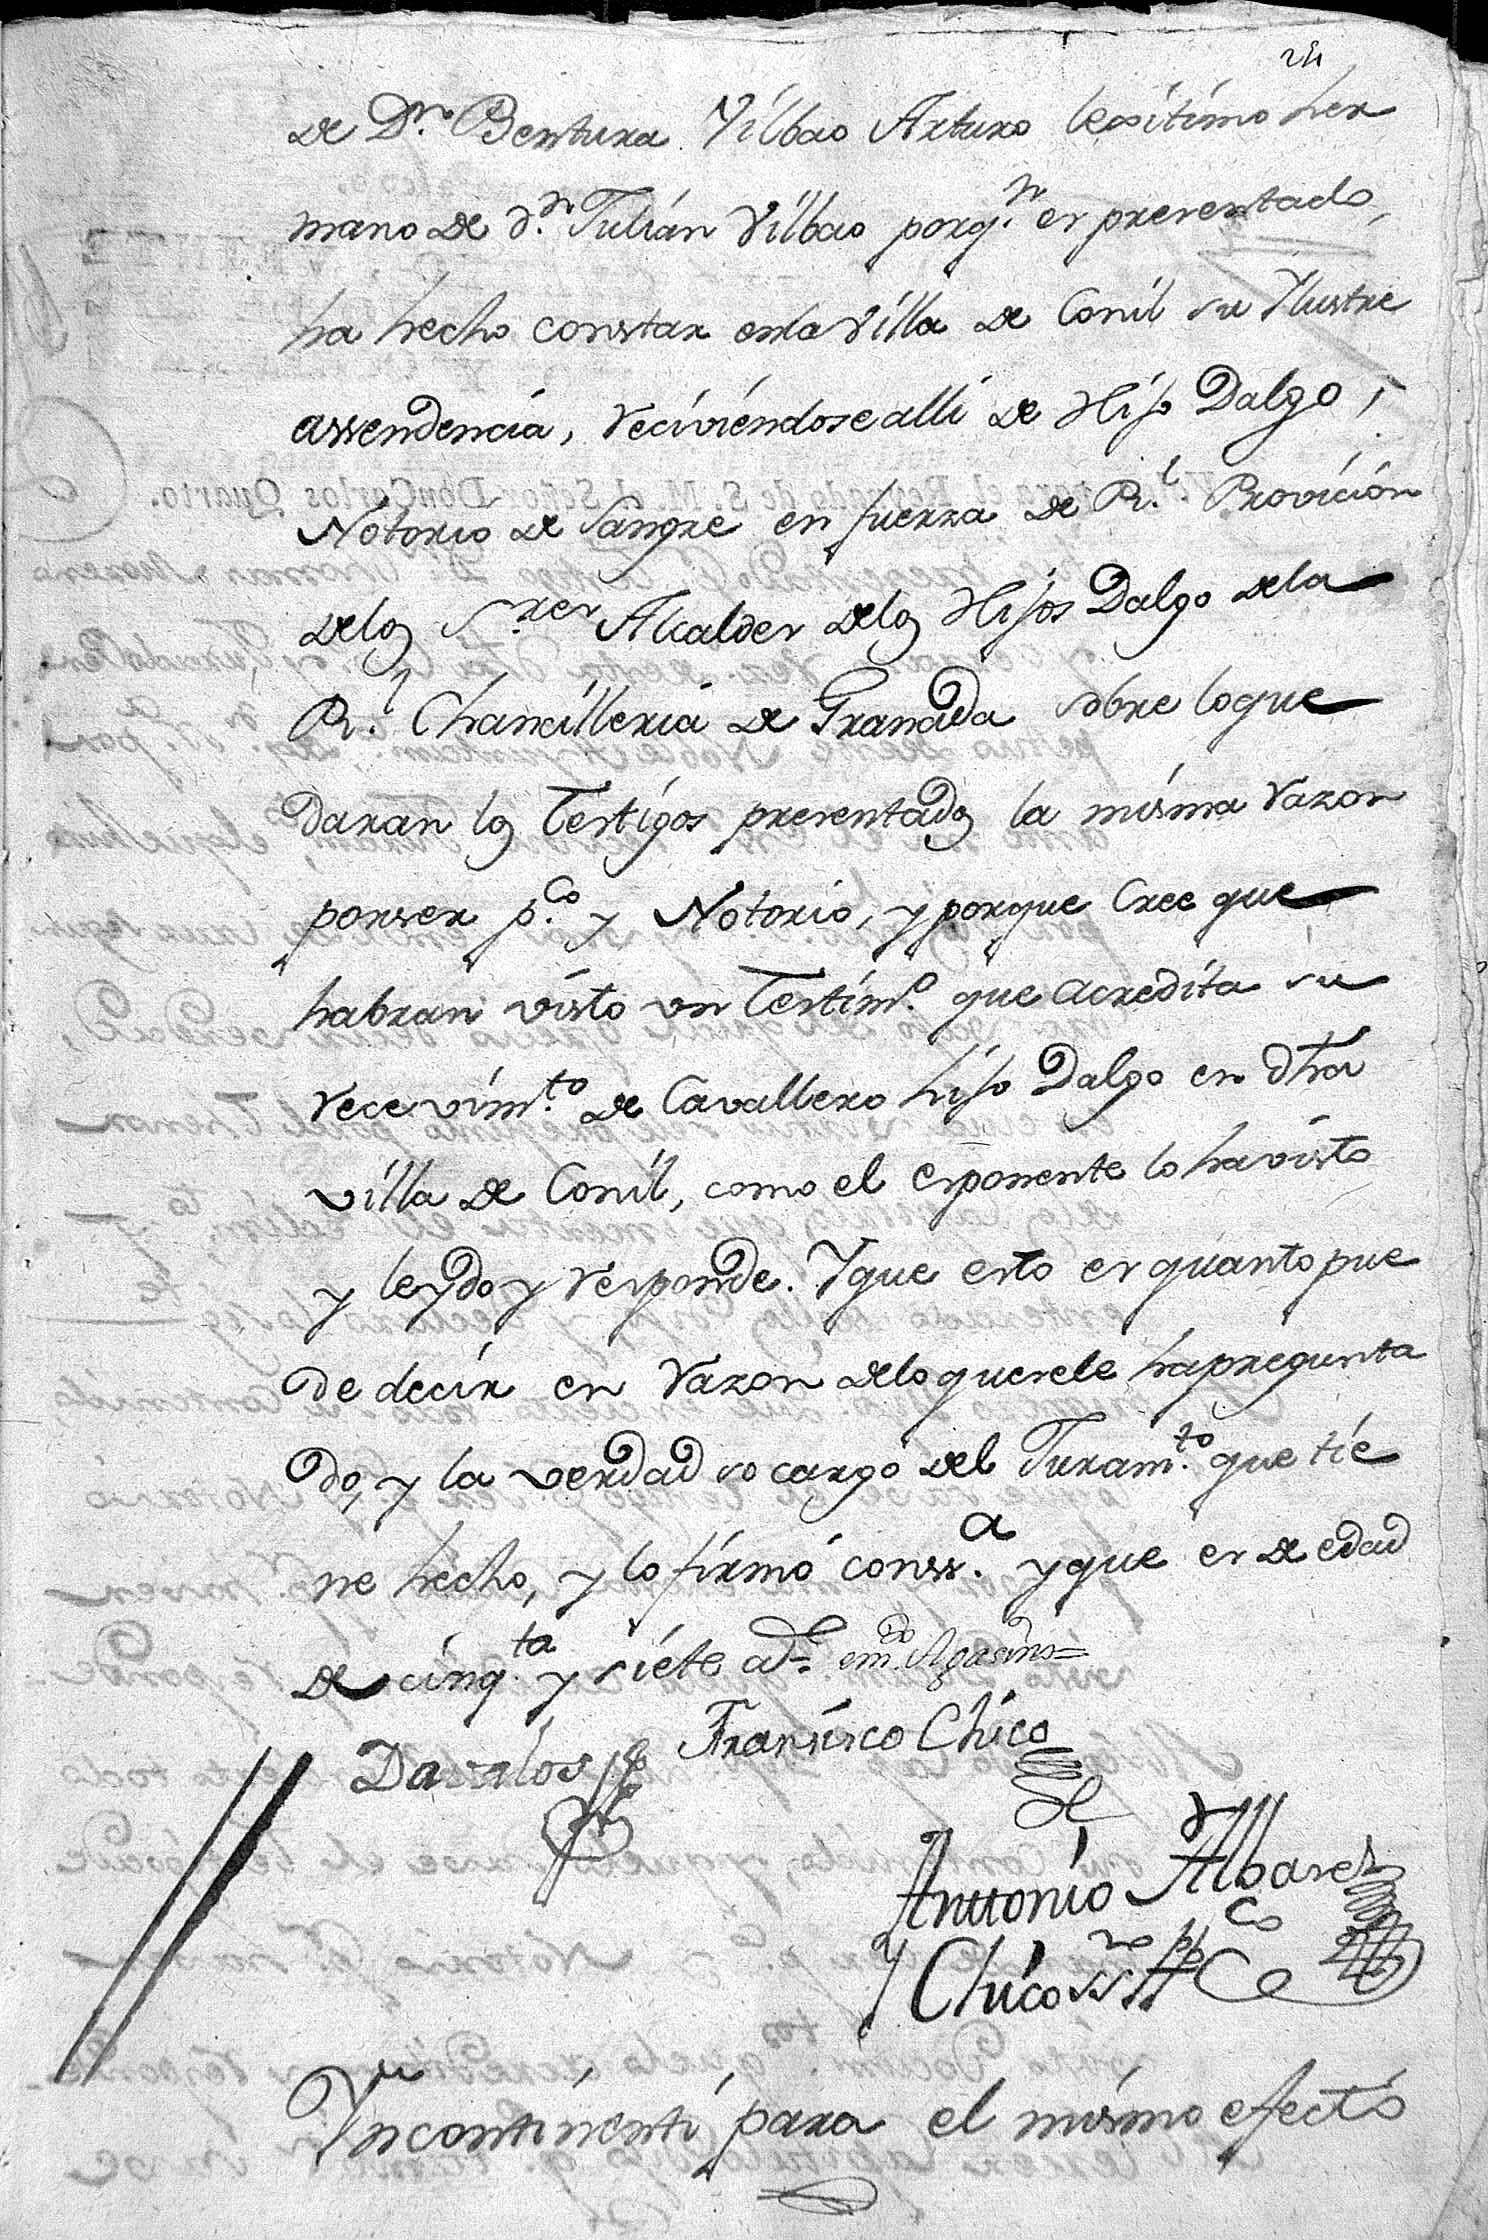 24
de Dn. Bentura Vilbao Arturo lexitimo her
mano de dn. Julián Vilbao porqn. es presentado,
ha hecho constar enla Villa de Conil su Ylustre
assendencia, reciviéndose alli de Hijo Dalgo,
Notorio de Sangre en fuerza de Rl. Provición
delos Sres Alcaldes delos Hijos Dalgo dela
Rl. Chancilleria de Granada sobre loque
daran los Testigos presentados la misma razon
porser pco. y Notorio, y porque Cree que
habran visto un Testimo. que acredita su
recevimto. de Cavallero hijo Dalgo en dha
villa de Conil, como el esponente lo havisto
y leydo y responde. Y que esto es quanto pue
de decir en razon delo quesele hapregunta
do, y la verdad so cargo del Juramto. que tie
ne hecho, y lo firmó conss.a y que es de edad
de cinqta. y siete ads. emdo.
Davalos
Fransisco Chico
Anttonio Albares
y Chico ssno ppco
Yncontinenti para el mismo efecto